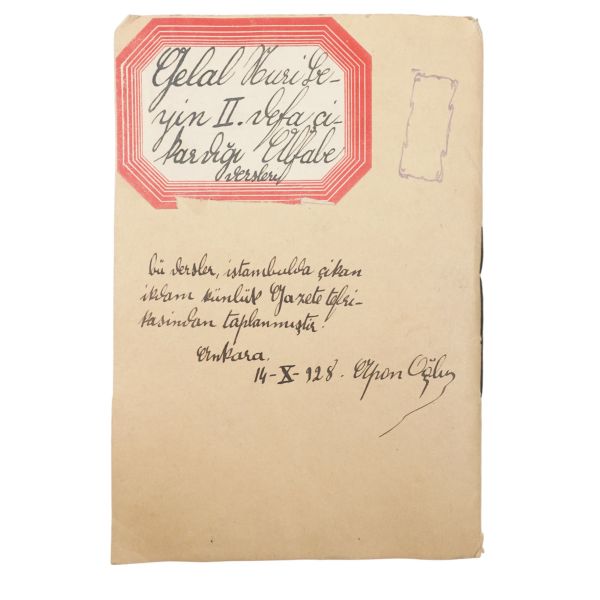 Celal Nuri be-
yin II. defa çi-
kardığı Elfabe
dersleri
bü dersler, istambulda çikan
ikdam künlük Gazete tefri-
kasindan taplanmıştır.
Ankara.
14-X-928. Apon Oğlu